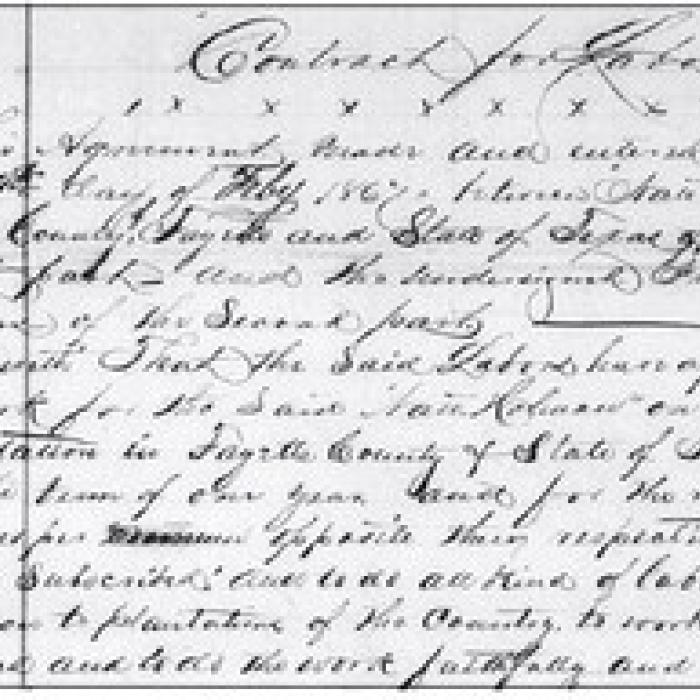 Contract for Labo
x x x x x x x x
Agreement made and entered
day of Feby 186 between Nat
County, Fayette and State of Texas of
part and the undersigned
of the Second part
That the said Laborers have
for the said Nat Holman on
tation in Fayette County & State of
term of one year and for the
per opposite their respecti
Subscribed and to do all kind of lab
on to plantations of the Country, to work
and to do the work faithfully and